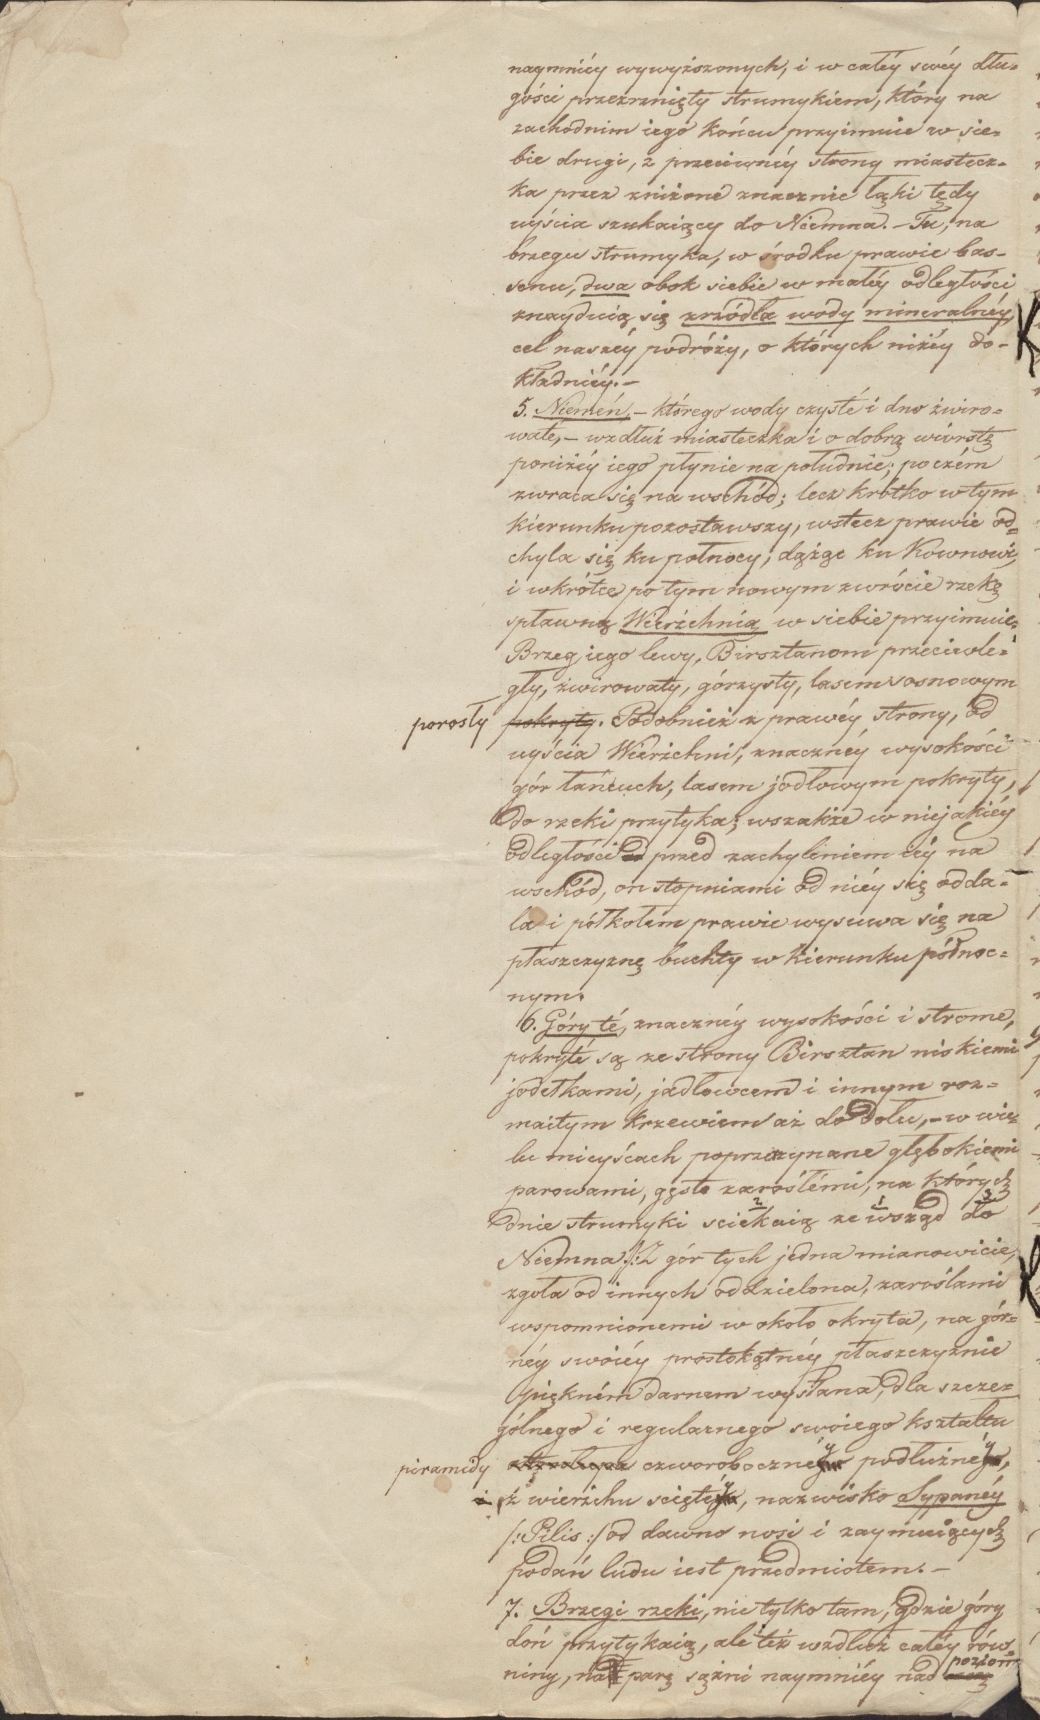 naymniéy wywyższonych, i w całéy swéy dłu=
gości przerznięty strumykiem, który na
zachodnim iego końcu przyimuie w sie=
bie drugi, z przeciwnéy strony miastecz=
ka przez zniżone znacznie łąki tędy
uyścia szukaiący do Niemna. – Tu, na
brzegu strumyka, w środku prawie bas=
senu, dwa obok siebie w małéy odległości
znayduią się zrzódła wody mineralnéy,
cel naszéy podróży, o których niżéy do=
kładniéy. –
5. Niemen. – którego wody czysté i dno żwiro=
wate, – wzdłuż miasteczka i o dobrą wiorstę
poniżéy iego płynie na południe; poczém
zwraca się na wschód; lecz krótko w tym
kierunku pozostawszy, wstecz prawie od=
chyla się ku północy, dążąc ku Kownowi,
i wkrótce po tym nowym zwrócie rzekę
spławną Wierzchnią w siebie przyimuie.
Brzeg iego lewy, Birsztanom przeciwle=
gły, żwirowaty, górzysty, lasem sosnowym
porosły pokryty. Podobnież z prawéy strony, od
uyścia Wierzchni, znacznéy wysokości
gór łańcuch, lasem jodłowym pokryty,
do rzeki przytyka; wszakże w niejakiéy
odległości przed zachyleniem iéy na
wschód, on stopniami od niéy się odda=
la i półkołem prawie wysuwa się na
płaszczyznę buchty w kierunku północ=
nym.
6. Góry té, znacznéy wysokości i strome,
pokryté są ze strony Birsztan niskiemi
jodełkami, jadłowcem i innym roz=
maitym krzewiem aż do dołu, – w wie=
lu mieyścach poprzerzynane głębokiemi
parowami, gęsto zarosłémi, na których
2 1 3
dnie strumyki sciekaią ze wsząd do
Niemna. /: Z gór tych jedna mianowicie,
zgoła od innych oddzielona, zaroślami
wspomnionemi w około okryta, na gór=
néy swoiéy prostokątnéy płaszczyznie
piękném darnem wysłana, dla szcze=
gólnego i regularnego swoiego kształtu
piramidy czworobocznéy podłużnéy,
i z wierzchu sciętéy, nazwisko Sypanéy
/: Pilis :/ od dawno nosi i zaymuiących
podań ludu iest przedmiotem. –
7. Brzegi rzeki, nie tylko tam, gdzie góry
doń przytykaią, ale też wzdłuż całéy rów=
niny, na parę sążni naymniéy nad poziom